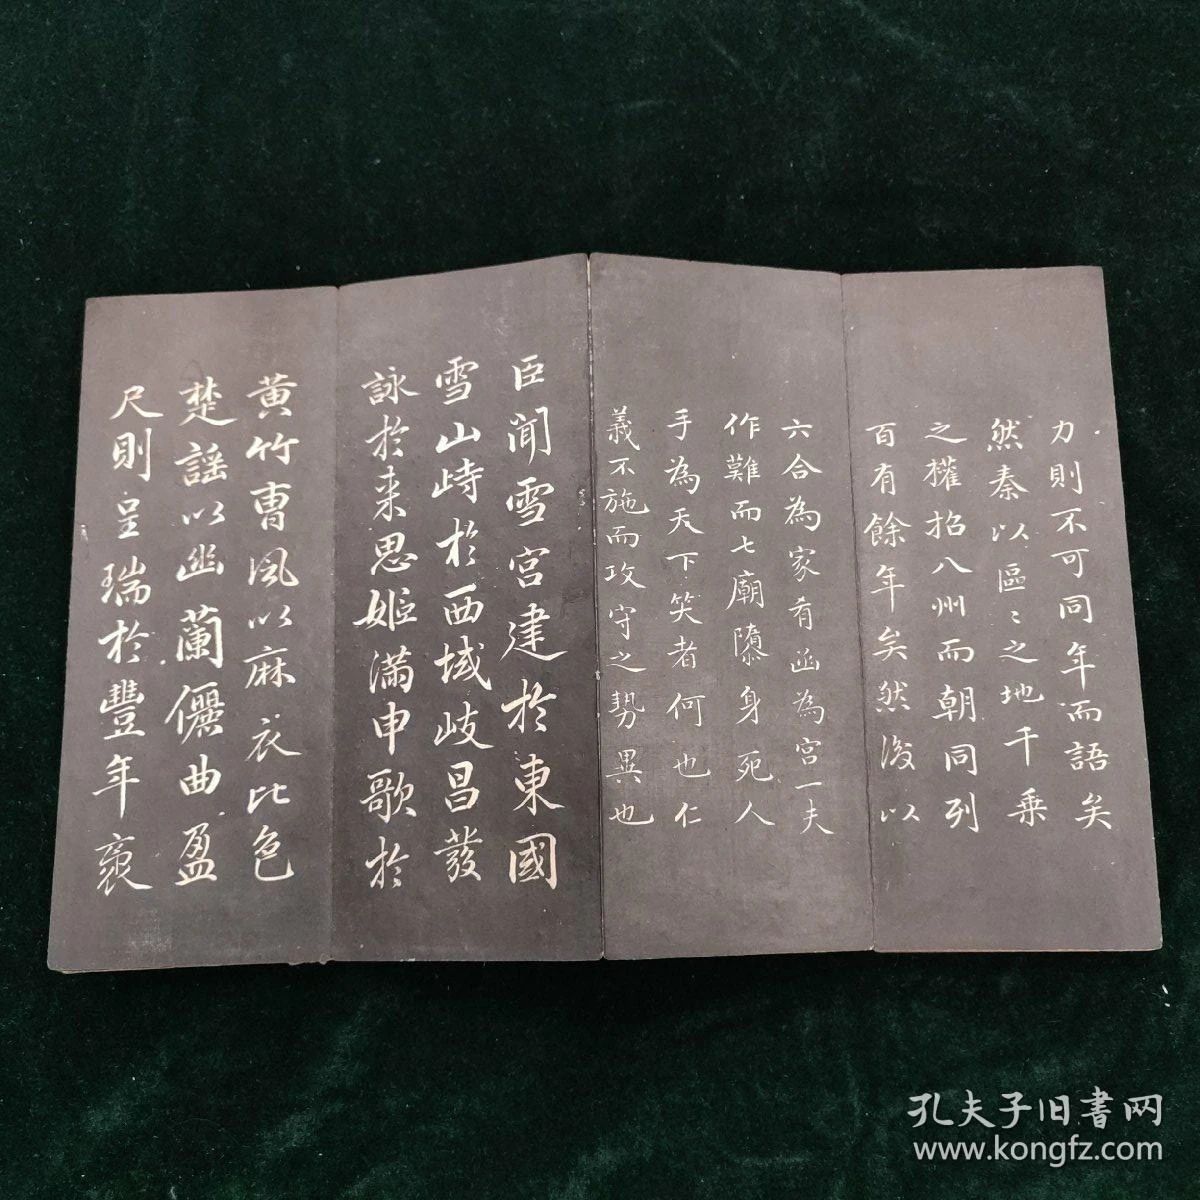 力則不可同年而語矣
然秦以區〻之地千乗
之權招八州而朝同列
百有餘年矣然後以
六合為家肴函為宮一夫
作難而七廟隳身死人
手為天下笑者何也仁
義不施而攻守之勢異也
臣聞雪宮建於東國
雪山峙於西域岐昌發
詠於来思姬滿申歌於
黄竹曹風以麻衣比色
楚謡以幽蘭儷曲盈
尺則呈瑞於豐年袤
孔夫子旧書网
www.kongfz.com